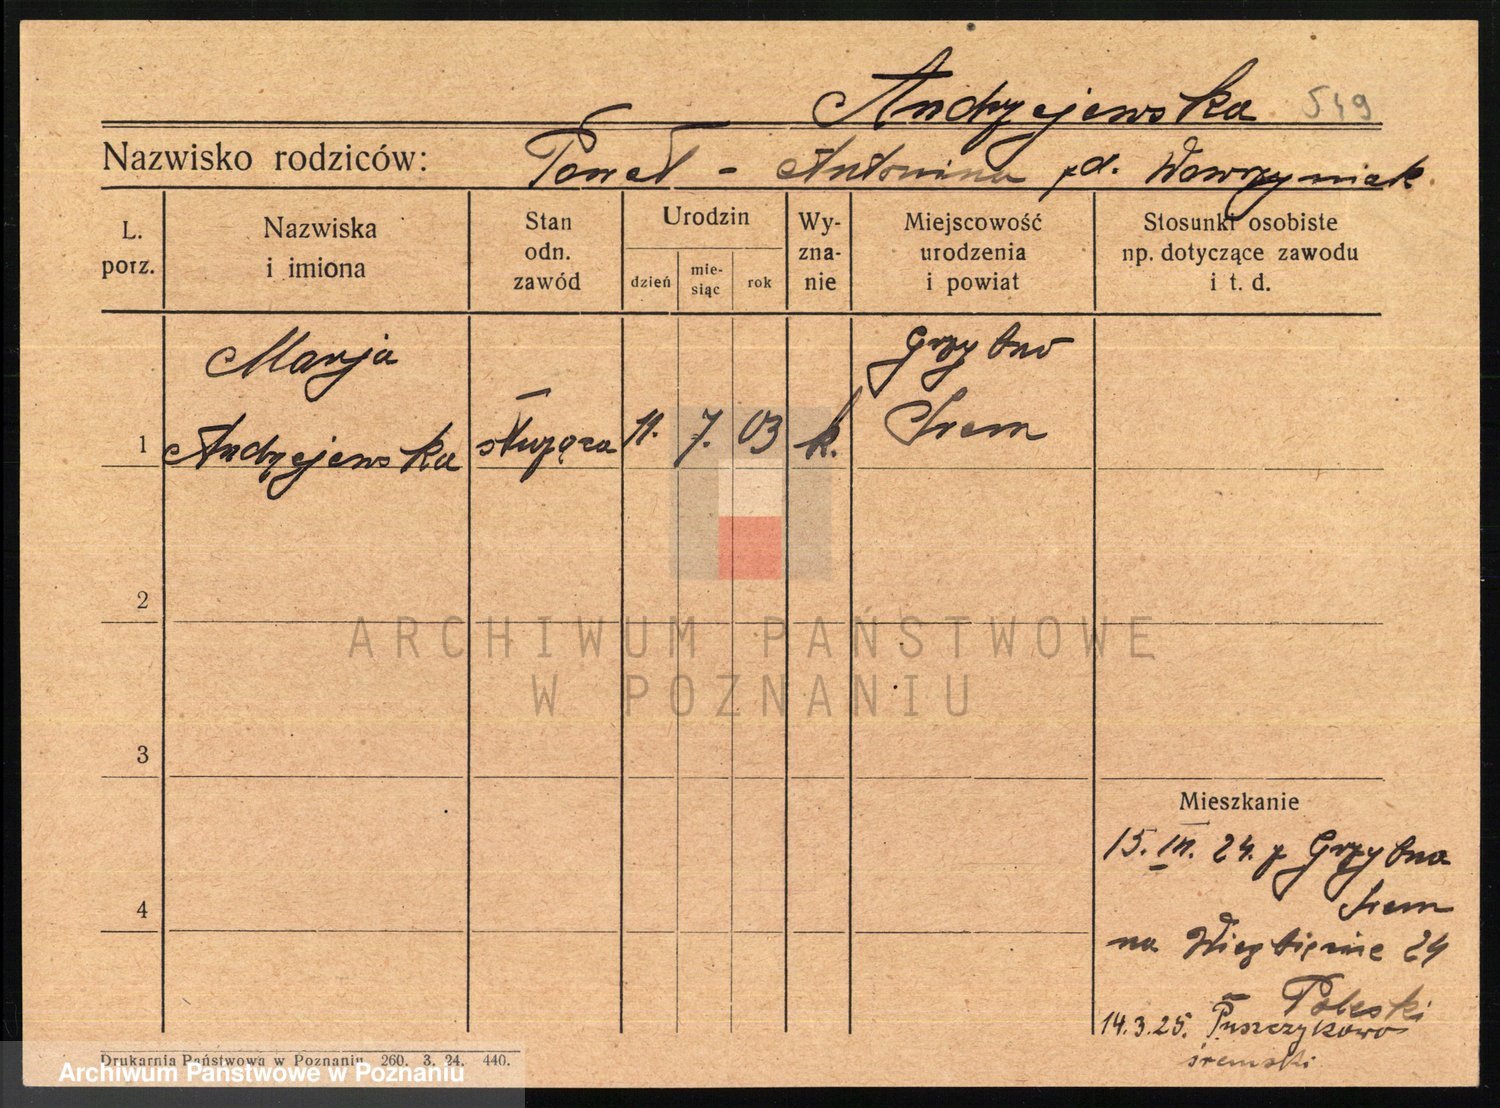 Andrzejewska 549
Nazwisko rodziców: Paweł - Antonina zd. Wawrzyniak.
L. porz.
Nazwiska i imiona
Stan odn. zawód
Urodzin
dzień
mie-siąc
rok
Wy-zna-nie
Miejscowość urodzenia i powiat
Stosunki osobiste np. dotyczące zawodu i t. d.
Marja
Grzybno
1 Andrzejewska służąca 11. 7. 03 k. Śrem
2
ARCHIWUM PAŃSTWOWE
W POZNANIU
3
Mieszkanie
15. III. 24. z Grzybna
4
Śrem
na Wierzbięcice 24
Poleski
14.3.25. Puszczykowo
śremski
Drukarnia Państwowa w Poznaniu 260. 3. 24. 440.
Archiwum Państwowe w Poznaniu